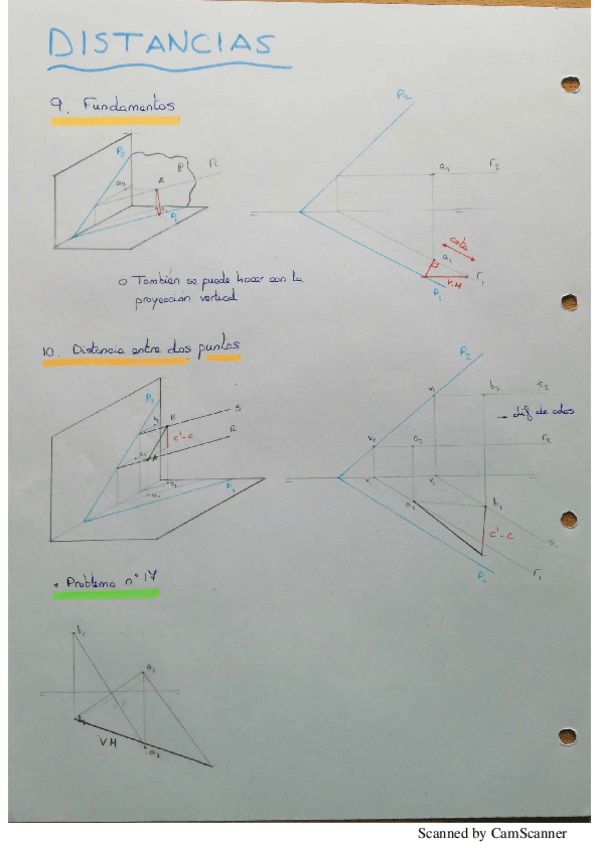 DISTANCIAS
9. Fundamentos
P2
P2
P
R
A
P1
a2
r2
cota
a1
r1
V.M
P1
o También se puede hacer con la
proyección vertical
10. Distancia entre dos puntos
P2
P2
S
R
c'-c
A
b2
s2
→ dif de cotas
a2
r2
b1
a1
c'-c
s1
r1
P1
• Problema nº 17
a1
V.M
a2
Scanned by CamScanner